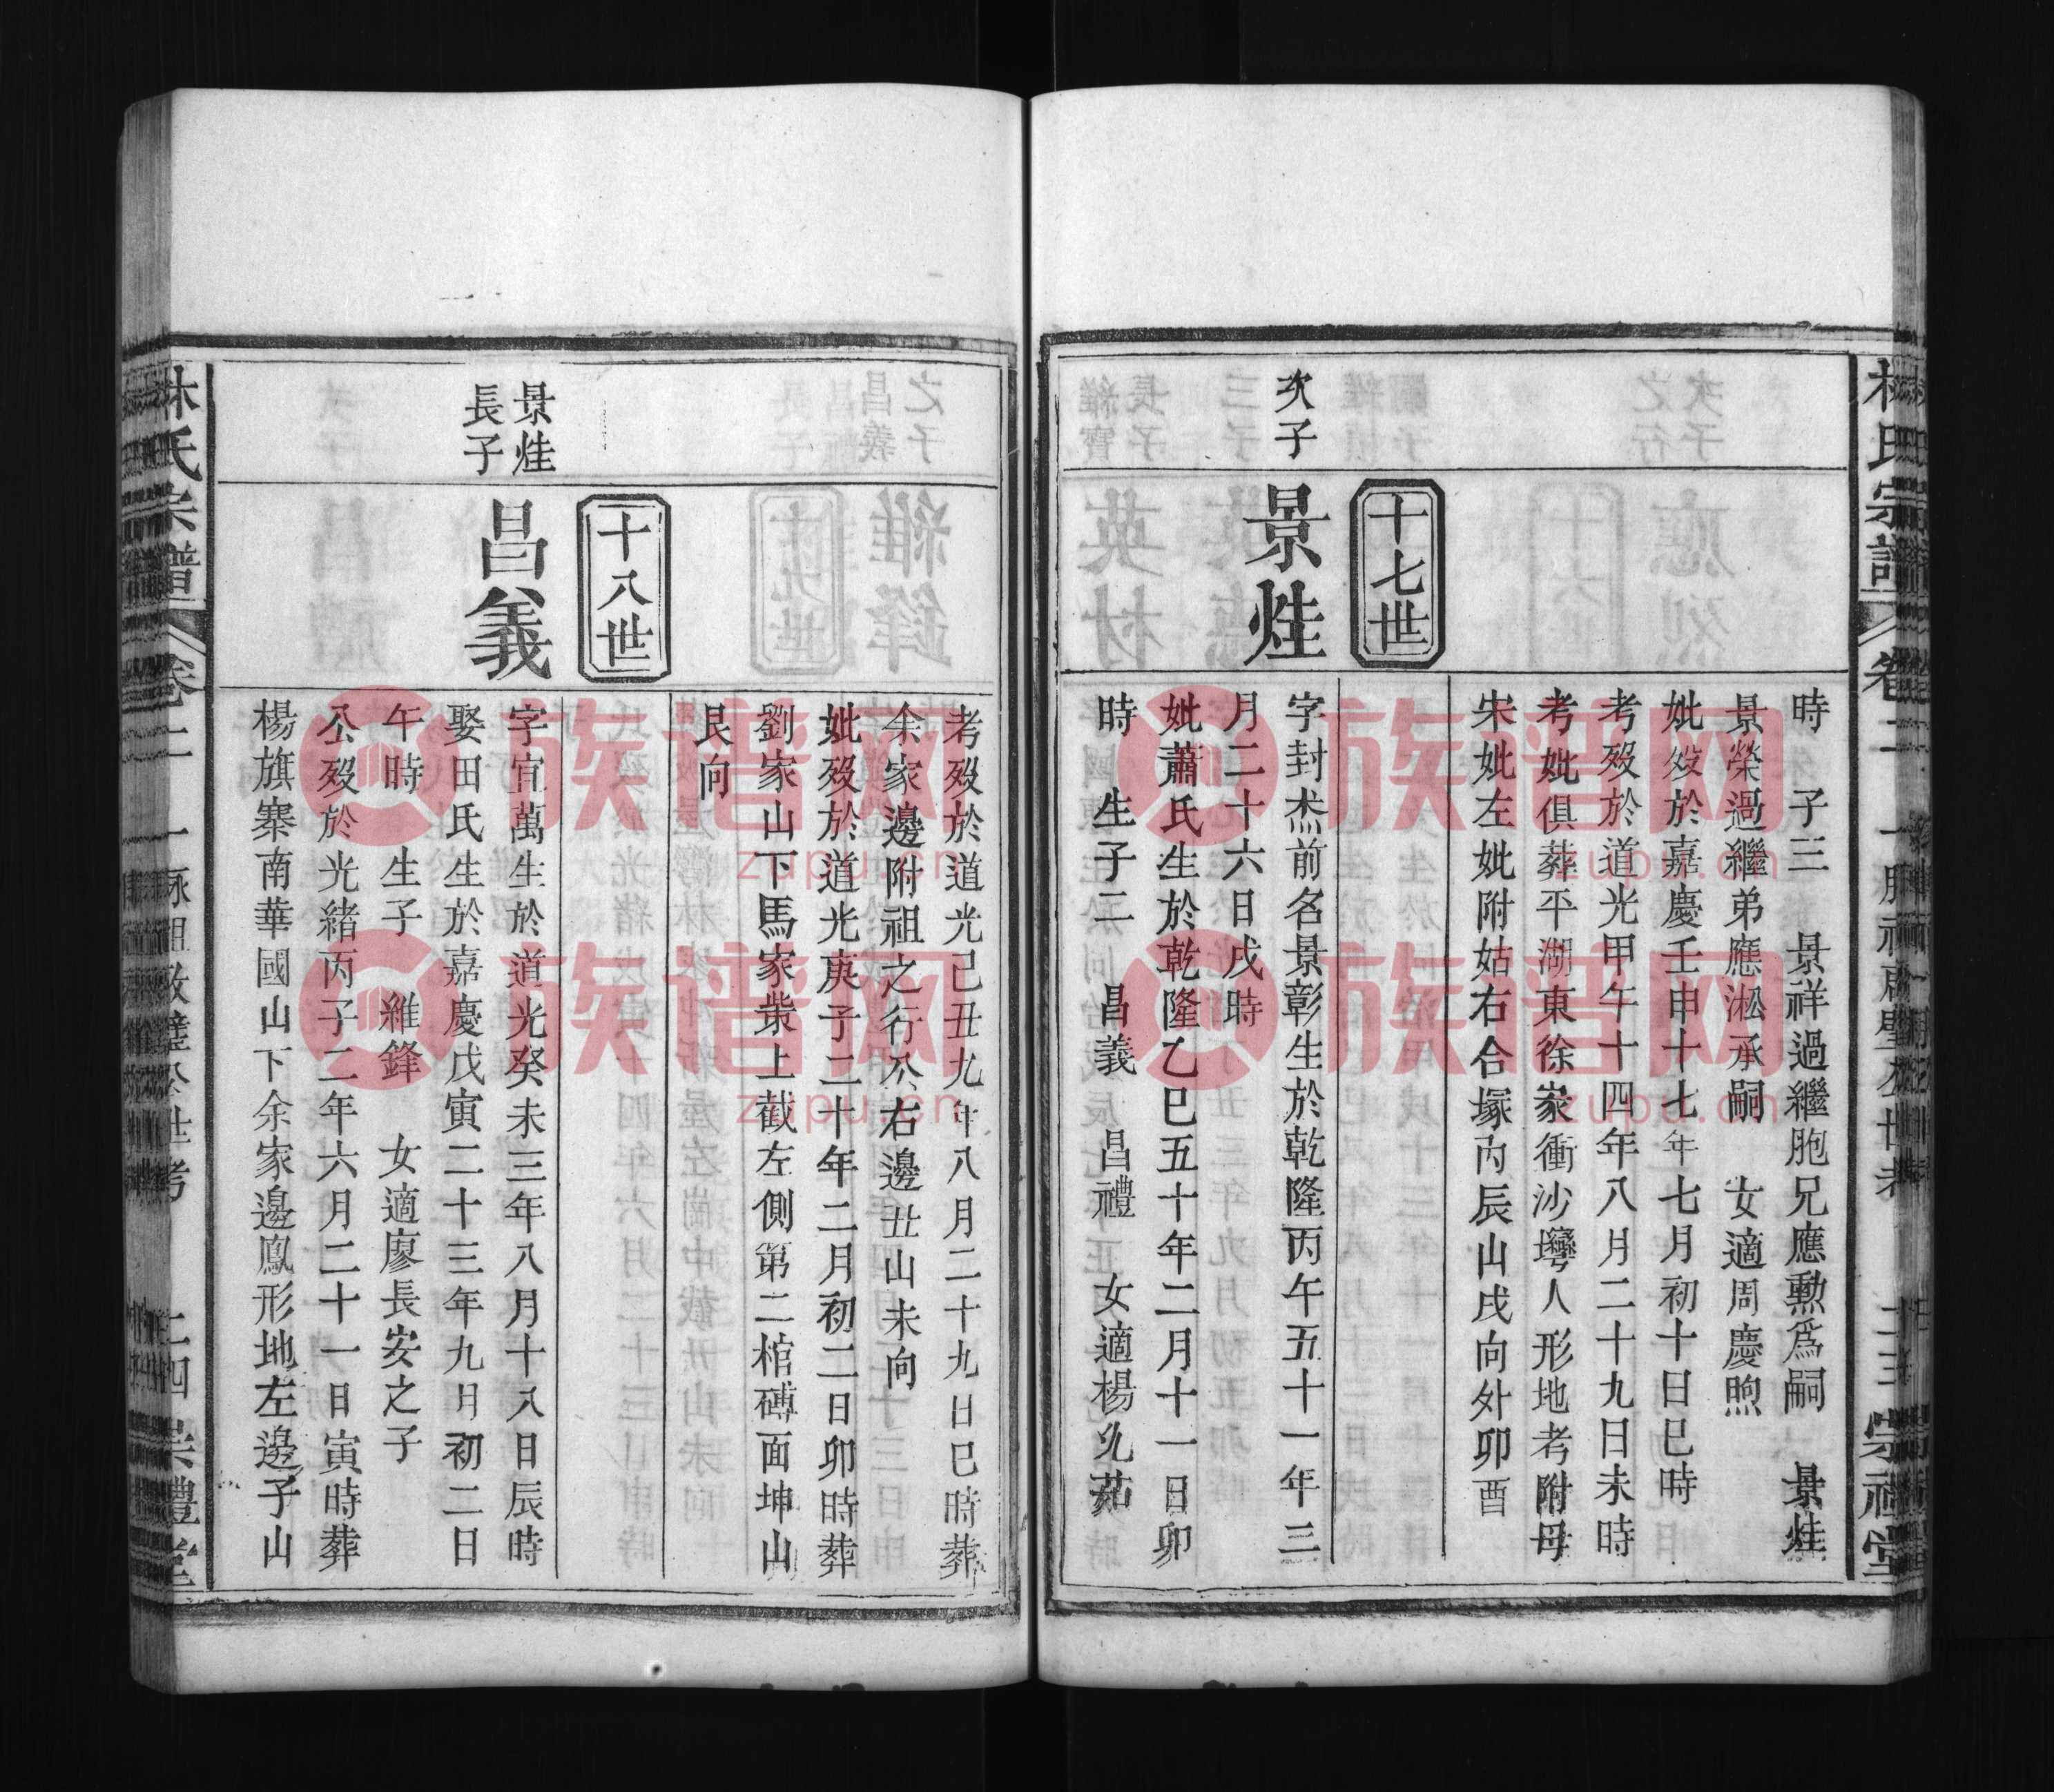 林氏宗譜
卷二
宗禮堂
時 子三 景祥過繼胞兄應勲爲嗣 景烓
景榮過繼弟應淞承嗣 女適周慶煦
妣歿於嘉慶壬申十七年七月初十日巳時
考歿於道光甲午十四年八月二十九日未時
考妣俱葬平湖東徐家衝沙塆人形地考附母
宋妣左妣附姑右合塚内辰山戌向外卯酉
十七世
次子
景烓
字封杰前名景彰生於乾隆丙午五十一年三
月二十六日戌時
妣蕭氏生於乾隆乙巳五十年二月十一日卯
時 生子二 昌義 昌禮 女適楊允茹
考歿於道光己丑九年八月二十九日巳時葬
余家邊附祖之行公右邊丑山未向
妣歿於道光庚子二十年二月初二日卯時葬
劉家山下馬家柴上截左側第二棺磚面坤山
艮向
十八世
景烓
長子
昌義
字宜萬生於道光癸未三年八月十八日辰時
娶田氏生於嘉慶戊寅二十三年九月初二日
午時 生子 維鋒 女適廖長安之子
公歿於光緒丙子二年六月二十一日寅時葬
楊旗寨南華國山下余家邊鳳形地左邊子山
林氏宗譜
卷二
二四
崇禮堂
族谱网
zupu.cn
族谱网
zupu.cn
族谱网
zupu.cn
族谱网
zupu.cn